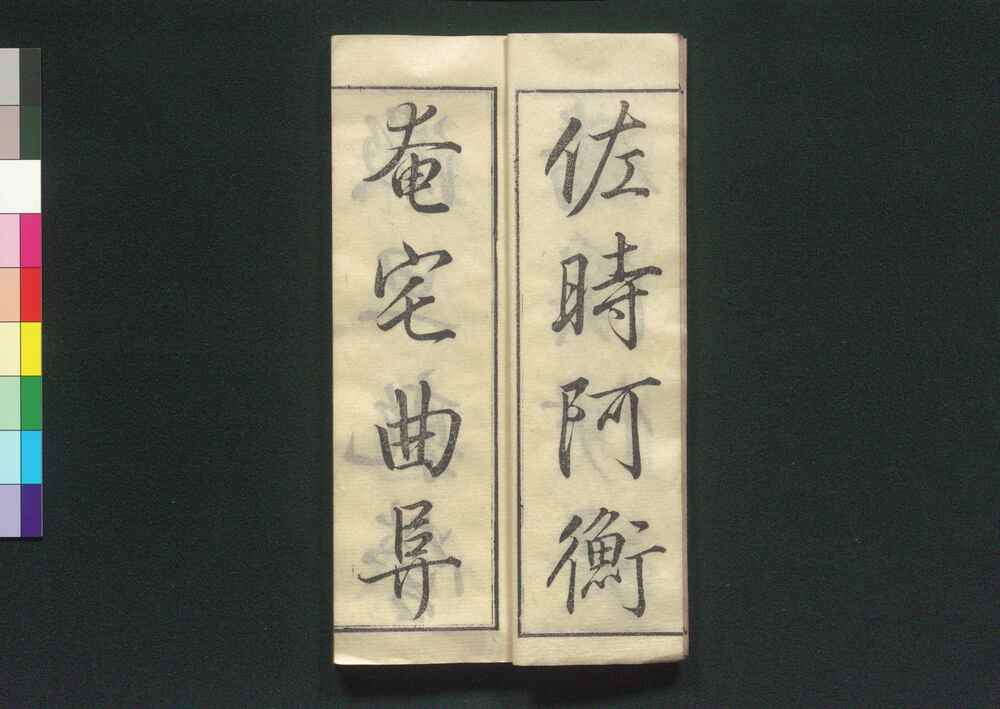 佐時阿衡
奄宅曲阜